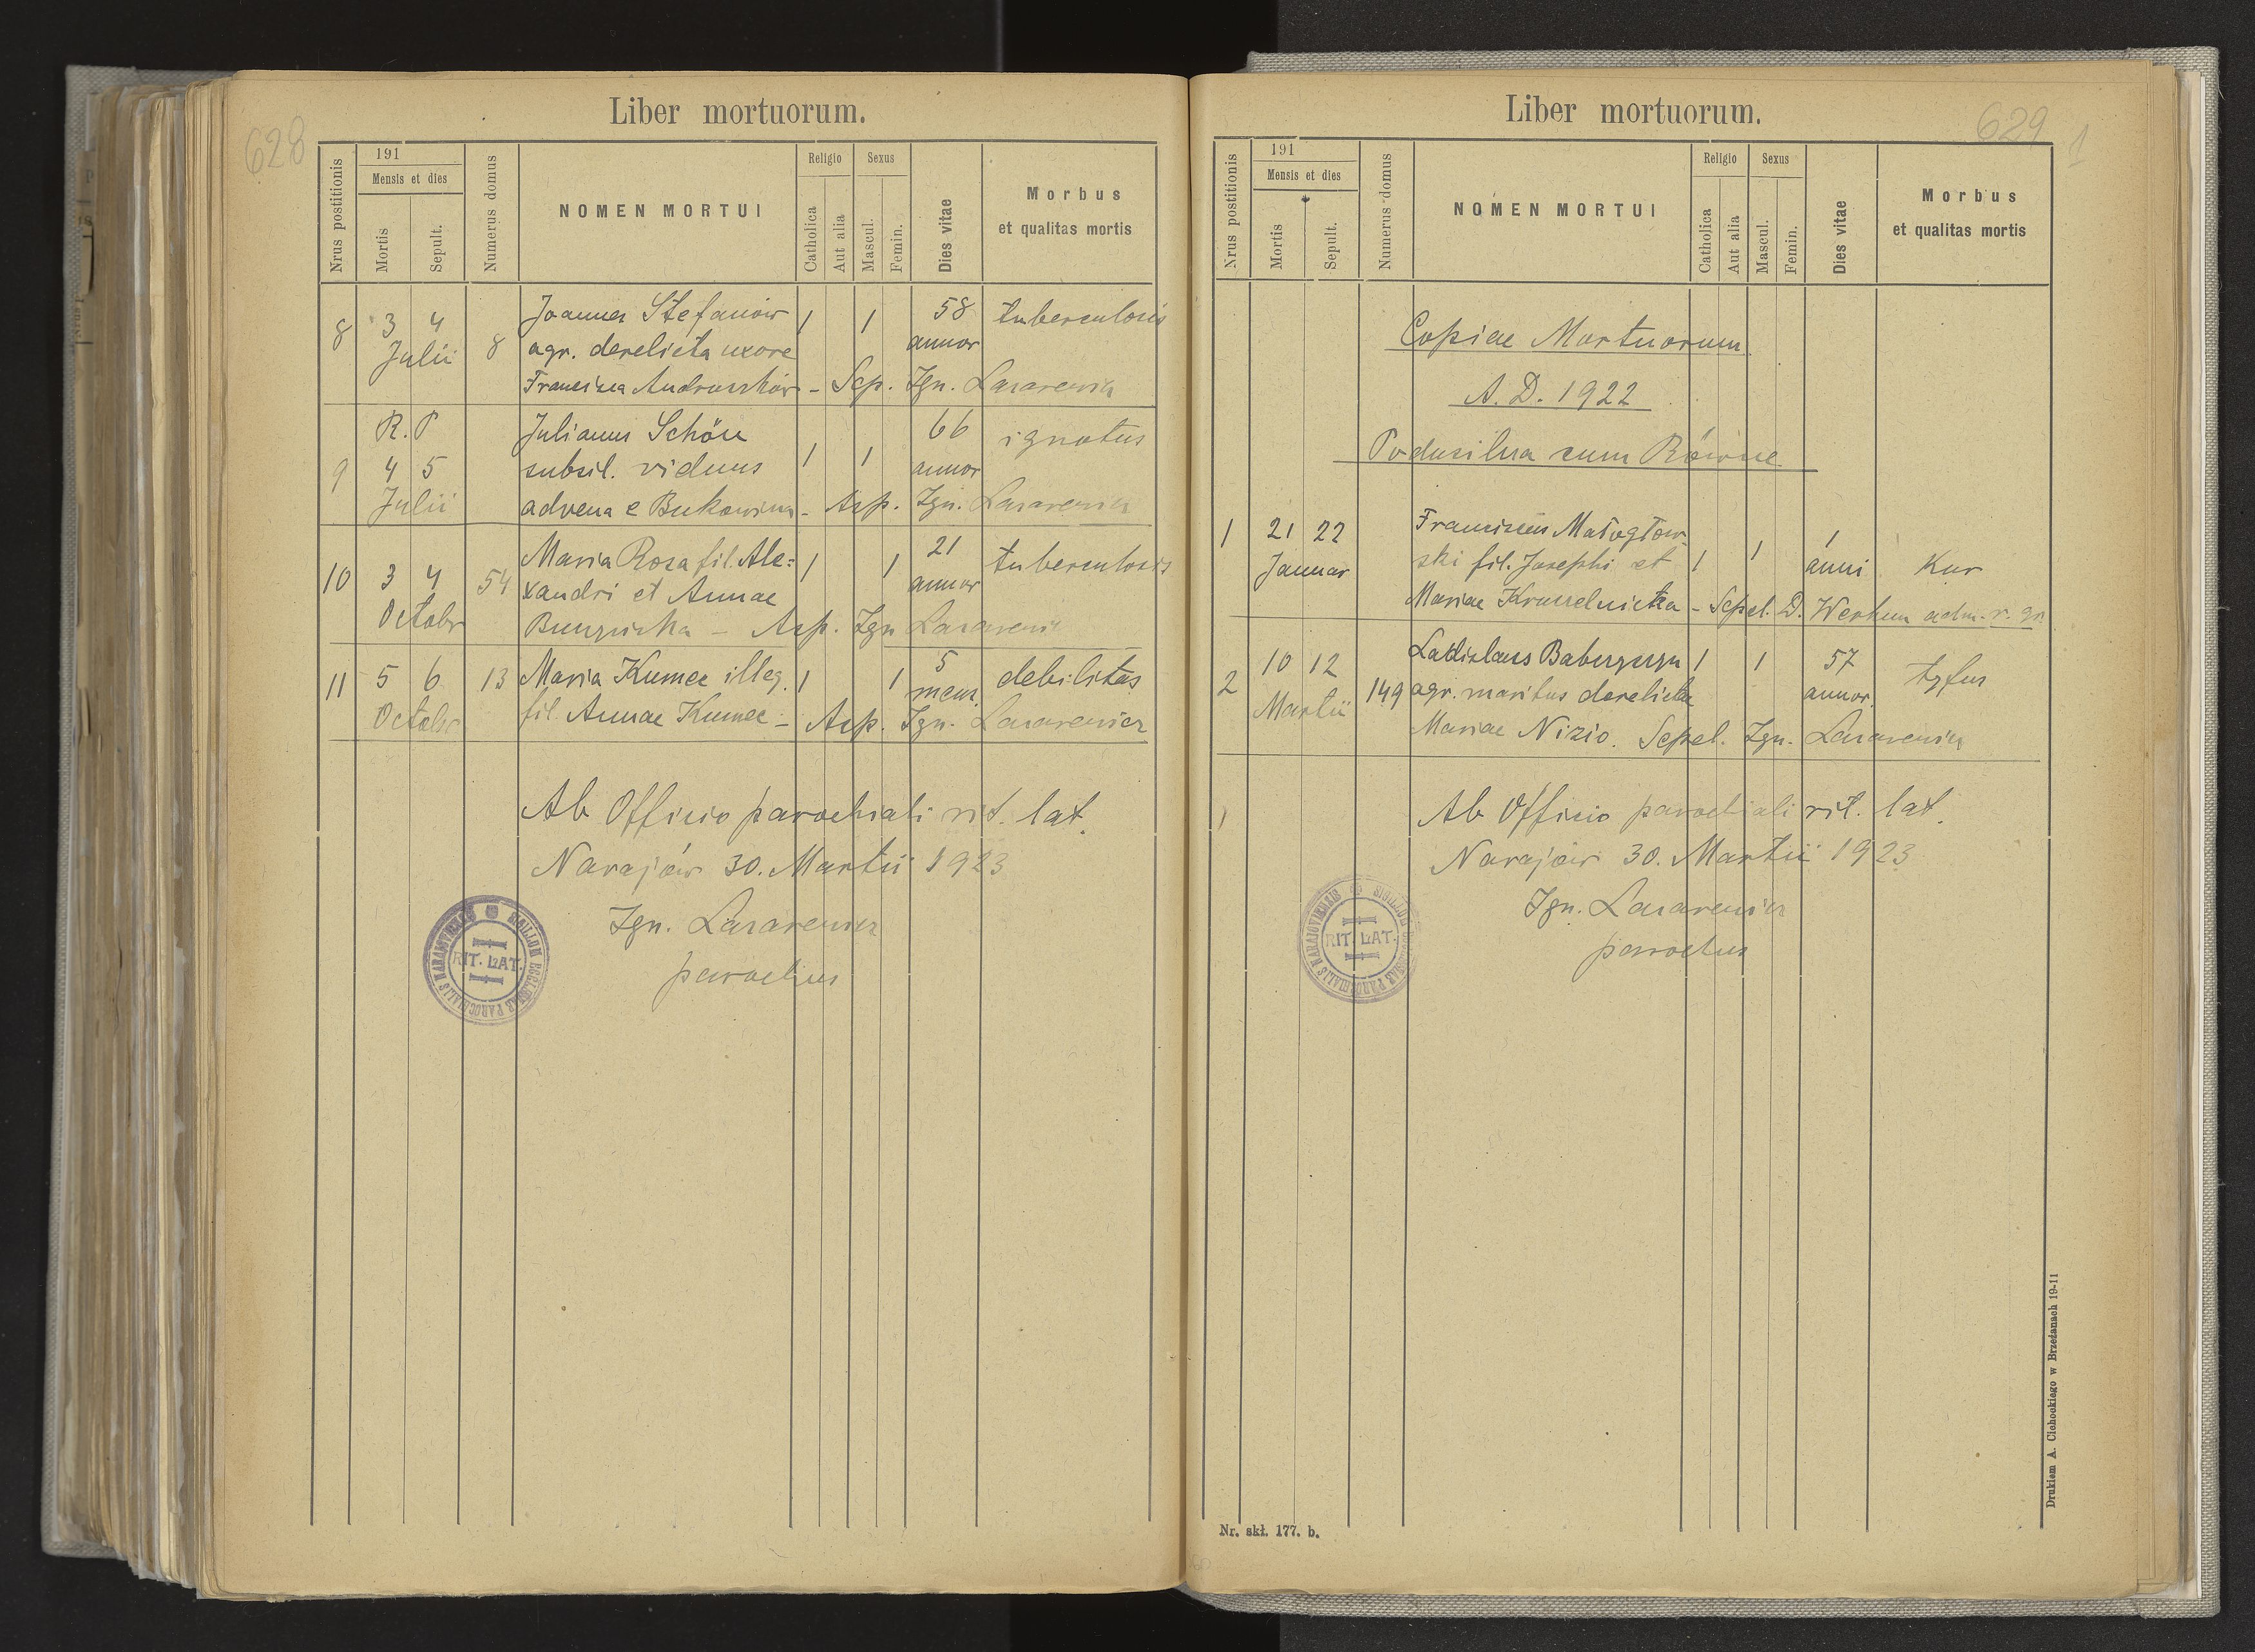 628
Liber mortuorum.
Nrus postitionis
191
Mensis et dies
Mortis
Sepult.
Numerus domus
NOMEN MORTUI
Religio
Catholica
Aut alia
Sexus
Mascul.
Femin.
Dies vitae
Morbus
et qualitas mortis
8 3 4 8 Joannes Stefanów 1 1 58 tuberculosis
Julii agr. derelicta uxore annor
Francisca Andruszków - Sep. Ign. Lazarewicz
R. P. Julianus Schön 66 ignotus
9 4 5 subsil. viduus 1 1 annor
Julii advena e Bukowina - Asp. Ign. Lazarewicz
10 3 4 54 Maria Rosa fil. Ale= 1 1 21 tuberculosis
Octobr xandri et Annae annor
Asp. Ign Lazarewicz
11 5 6 13 Maria Kumec illeg. 1 1 5 debilitas
Octobr fil. Annae Kumec - mens.
Asp. Ign. Lazarewicz
Ab Officio parochiali rit. lat.
Narajów 30. Martii 1923
Ign. Lazarewicz
parochus
SIGILLUM ECCLESIAE PAROCHIALIS NARAJOVIENSIS
RIT. LAT.
629
1
Liber mortuorum.
Nrus postitionis
191
Mensis et dies
Mortis
Sepult.
Numerus domus
NOMEN MORTUI
Religio
Catholica
Aut alia
Sexus
Mascul.
Femin.
Dies vitae
Morbus
et qualitas mortis
Copiae Mortuorum
A. D. 1922
Podusilna cum Równe
1 21 22 Franciscus Małogłow- 1 1 1
Januar ski fil. Josephi et anni Kur
Mariae Kruszelnicka - Sepel. D. Werhun adm. r. gr.
2 10 12 149 Ladislaus Babuszyn 1 1 57 tyfus
Martii agr. maritus derelictae annor.
Mariae Nizio. Sepel. Ign. Lazarewicz
Ab Officio parochiali rit. lat.
Narajów 30. Martii 1923
Ign. Lazarewicz
parochus
SIGILLUM ECCLESIAE PAROCHIALIS NARAJOVIENSIS
RIT. LAT.
Nr. skł. 177. b.
Drukiem A. Cichockiego w Brzeżanach 19-11